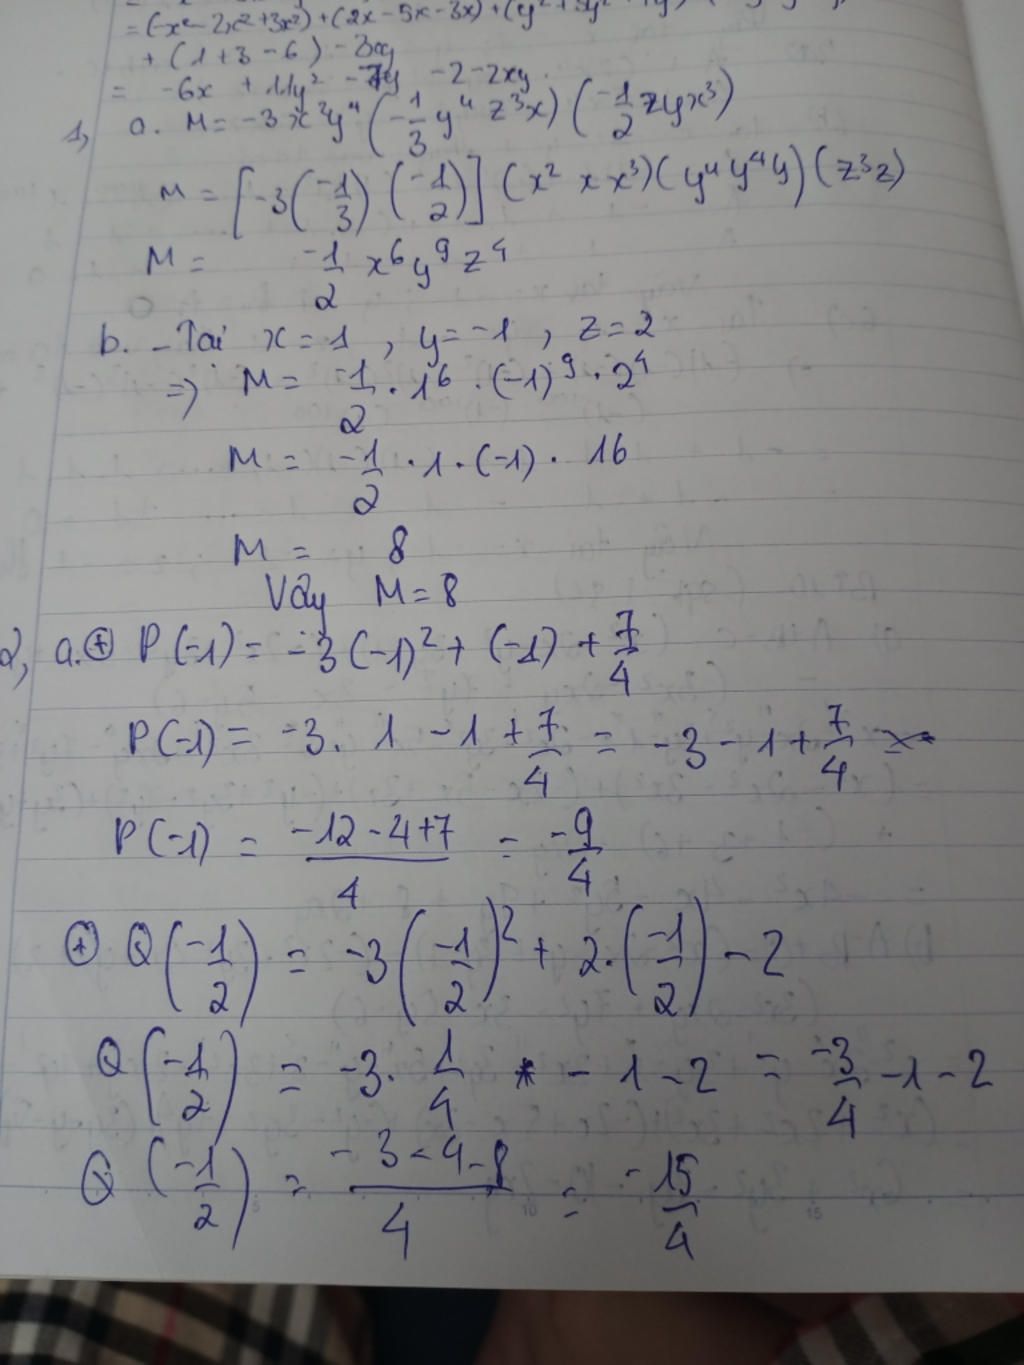 = (-x² - 2x² + 3x²) + (2x - 5x - 3x) + (y² +
+ (1 + 3 - 6) - 3xy
= -6x + 11y² - 7y - 2 - 2xy
1, a. M = -3x²y⁴ (-1/3 y⁴ z³x) (-1/2 zyx³)
M = [-3(-1/3) (-1/2)] (x² x x³) (y⁴ y⁴ y) (z³z)
M = -1/2 x⁶y⁹z⁴
b. - Tại x = 1 , y = -1 , z = 2
=> M = -1/2 . 1⁶ . (-1)⁹ . 2⁴
M = -1/2 . 1 . (-1) . 16
M = 8
Vậy M = 8
2, a. ⊕ P(-1) = -3(-1)² + (-1) + 7/4
P(-1) = -3. 1 - 1 + 7/4 = -3 - 1 + 7/4
P(-1) = (-12 - 4 + 7)/4 = -9/4
⊕ Q(-1/2) = -3(-1/2)² + 2.(-1/2) - 2
Q(-1/2) = -3. 1/4 - 1 - 2 = -3/4 - 1 - 2
Q(-1/2) = (-3 - 4 - 8)/4 = -15/4